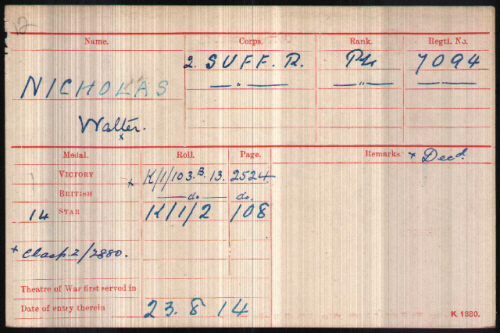 Name. Corps. Rank. Regtl. No.
NICHOLAS 2. SUFF. R. Pte 7094
— " — — " — — " —
Walter.
x
Medal. Roll. Page. Remarks x Decd.
VICTORY x K/1/103.B.13. 2524
BRITISH — do — do.
14 STAR K/1/2 108
x Clasp 2/2880.
Theatre of War first served in
Date of entry therein 23.8.14
K 1380.